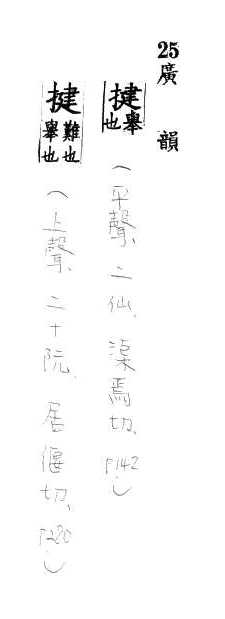 25廣韻
揵舉也（平聲、二仙、渠焉切、P142）
揵難也舉也（上聲、二十阮、居偃切、P280）